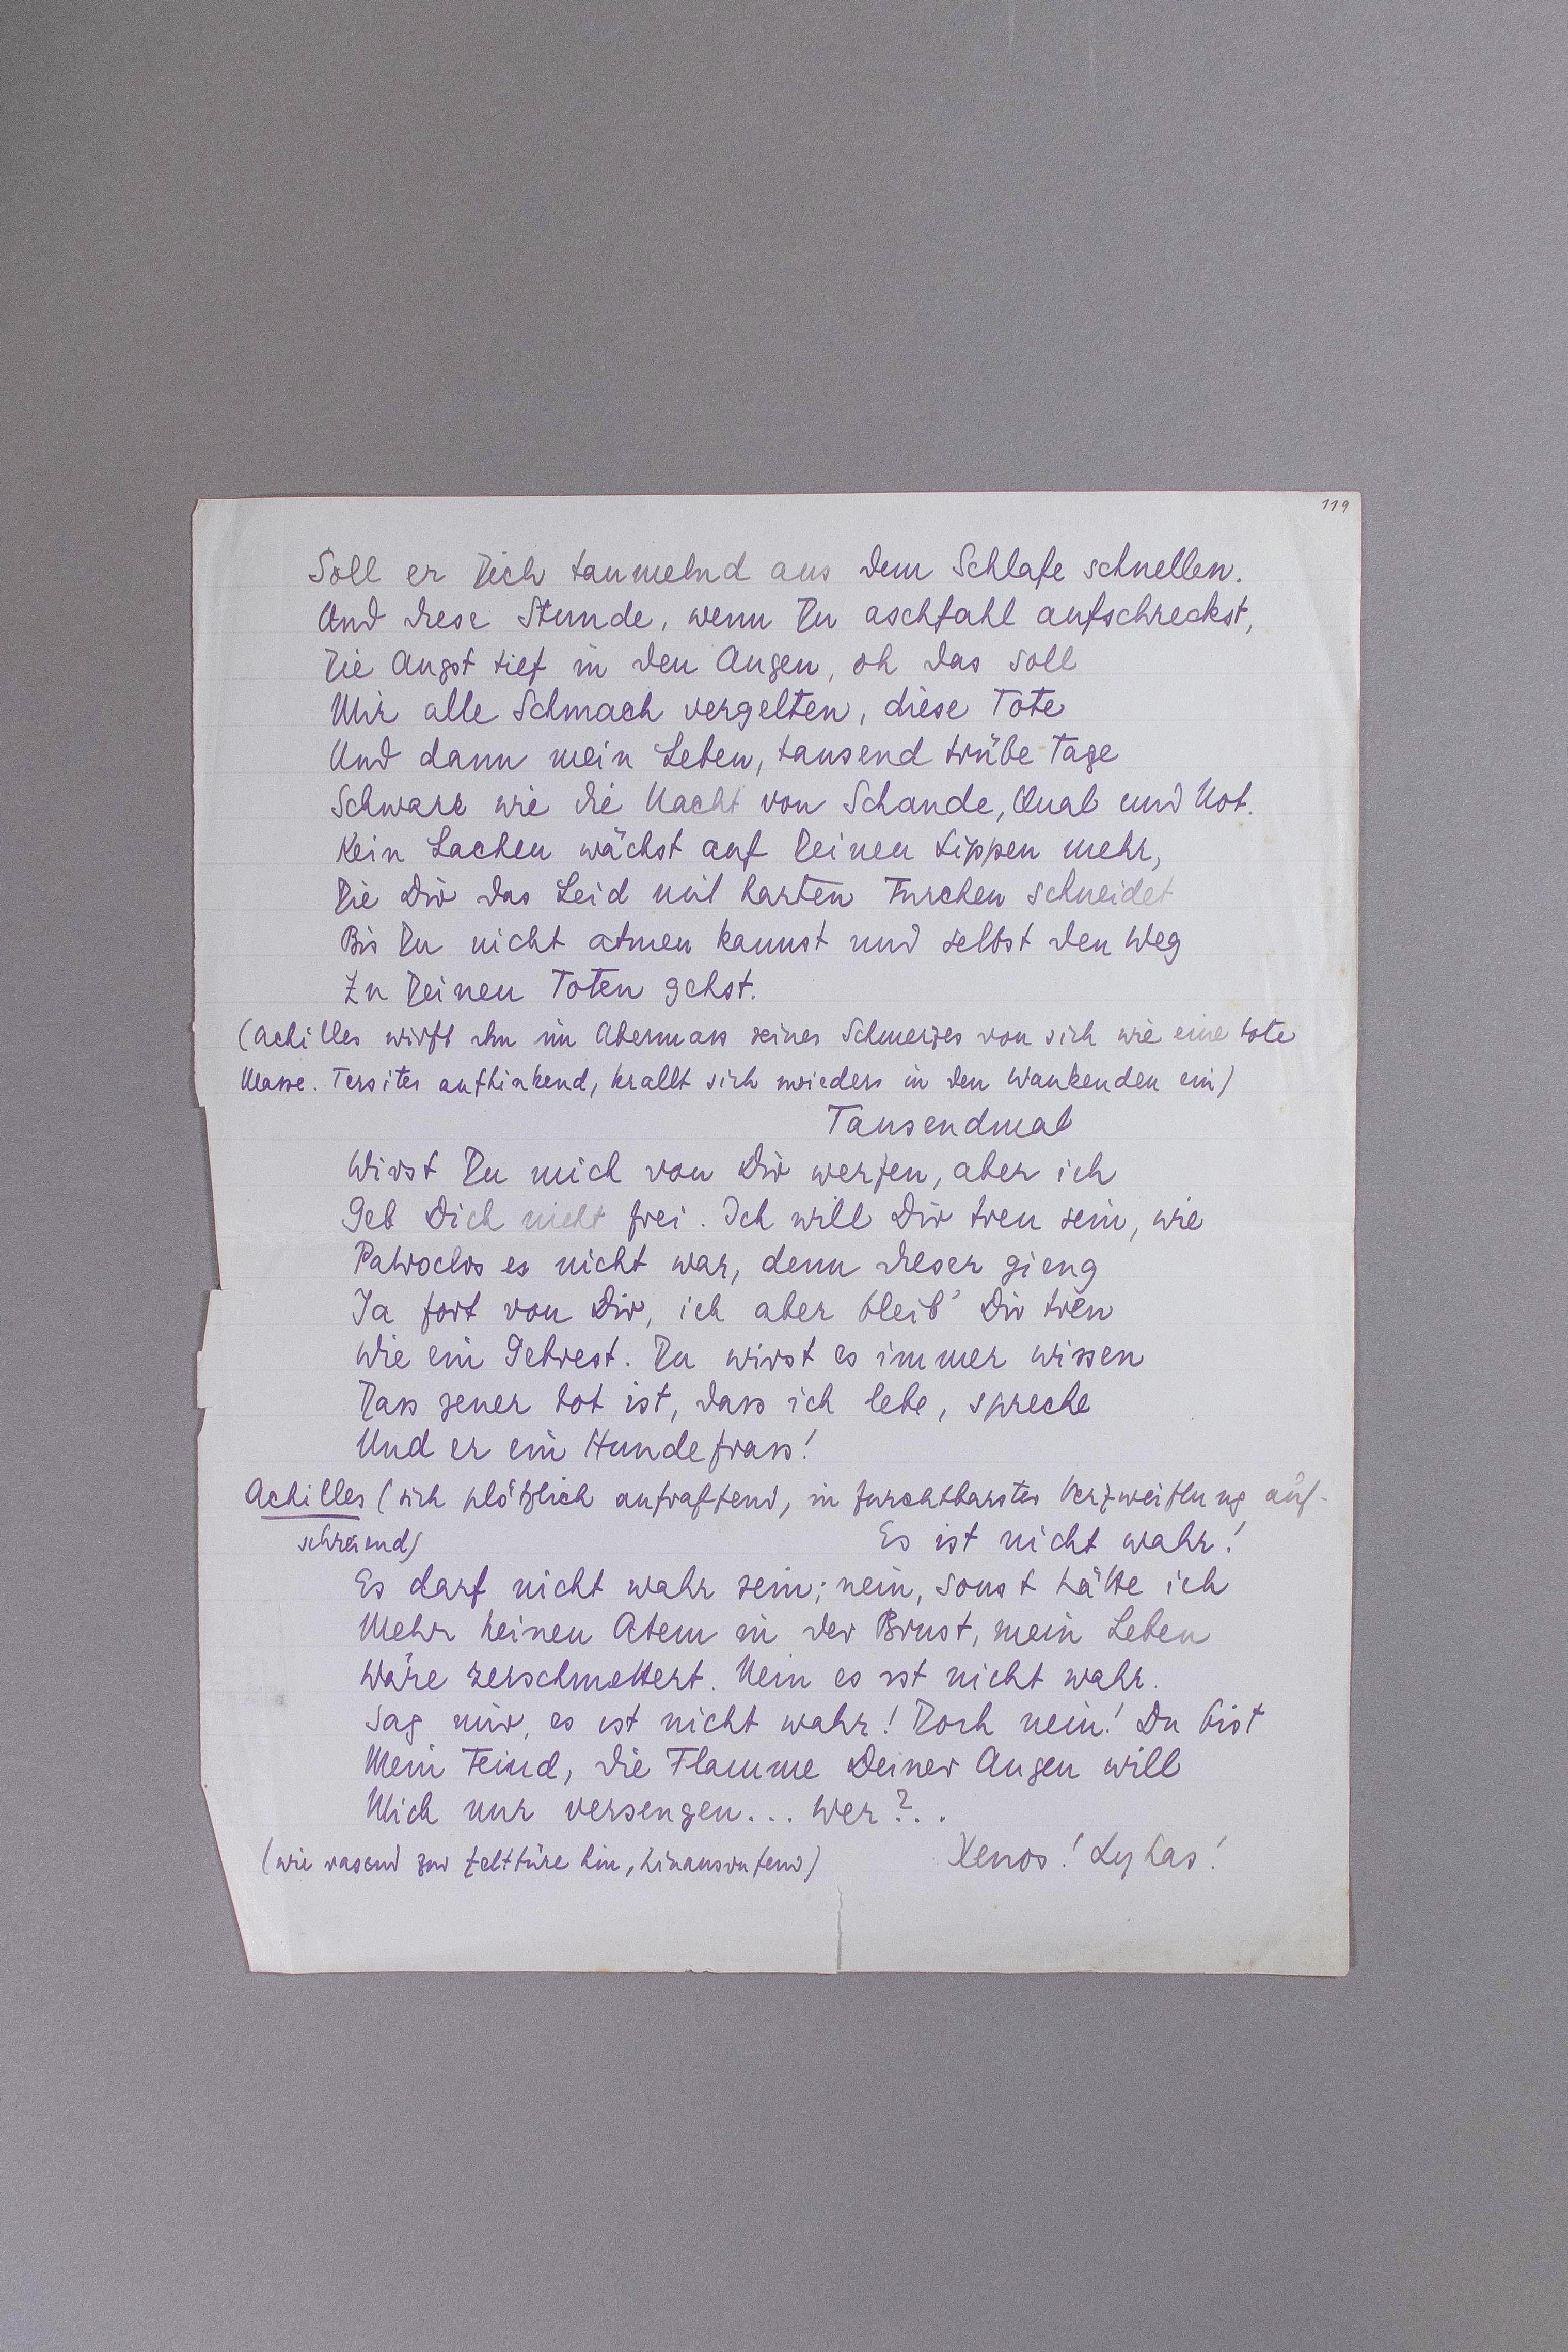 119
Soll er Dich taumelnd aus dem Schlafe schnellen.
Und diese Stunde, wenn Du aschfahl aufschreckst,
Die Angst tief in den Augen, oh das soll
Mir alle Schmach vergelten, diese Tote
Und dann mein Leben, tausend trübe Tage
Schwarz wie die Nacht von Schande, Qual und Not.
Kein Lachen wächst auf Deinen Lippen mehr,
Die Dir das Leid mit harten Furchen schneidet
Bis Du nicht atmen kannst und selbst den Weg
Zu Deinen Toten gehst.
(Achilles wirft ihn im Abermass seines Schmerzes von sich wie eine tote
Masse. Tersites aufhinkend, krallt sich wieder in den Wankenden ein)
Tausendmal
Wirst Du mich von Dir werfen, aber ich
Geb Dich nicht frei. Ich will Dir treu sein, wie
Patroclos es nicht war, denn dieser gieng
Ja fort von Dir, ich aber bleib' Dir treu
Wie ein Gebrest. Du wirst es immer wissen
Dass jener tot ist, dass ich lebe, spreche
Und er ein Hundefrass!
Achilles (sich plötzlich aufraffend, in furchtbarster Verzweiflung auf-
schreiend) Es ist nicht wahr!
Es darf nicht wahr sein; nein, sonst hätte ich
Mehr keinen Atem in der Brust, mein Leben
Wäre zerschmettert. Nein es ist nicht wahr.
Sag mir, es ist nicht wahr! Doch nein! Du bist
Mein Feind, die Flamme Deiner Augen will
Mich nur versengen... Wer?..
(wie rasend zur Zelttüre hin, hinausrufend) Xenos! Lykas!